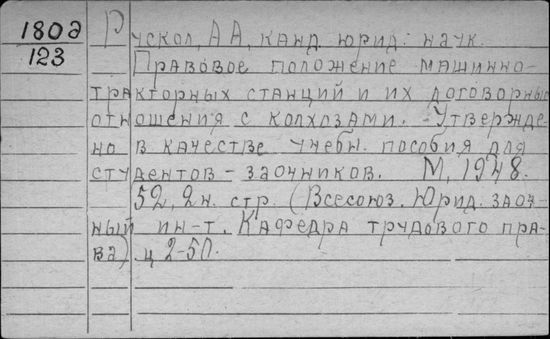 180д
123
Рускол, А А, канд. юрид. наук.
Правовое положение машинно-
тракторных станций и их договорные
отношения с колхозами. Утвержде-
но в качестве учебн. пособия для
студентов-заочников. М, 1948.
52, 2 н. стр. (Всесоюз. Юрид. заоч-
ный ин-т. Кафедра трудового пра-
ва) ц 2-50.